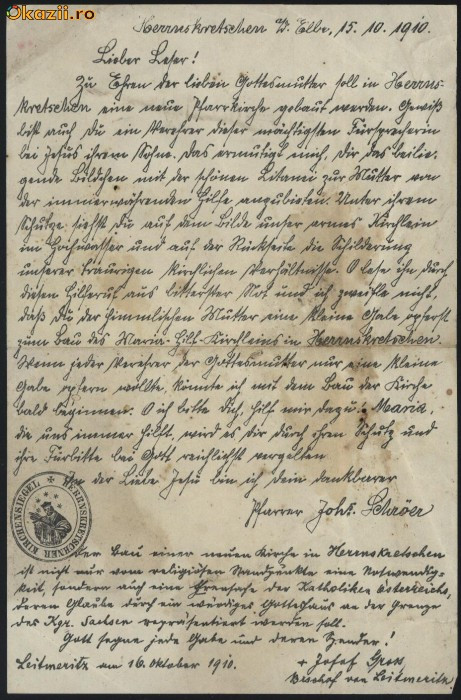 Okazii.ro
Herrnskretschen a/d. Elbe, 15. 10. 1910.
Lieber Leser!
Zu Ehren der lieben Gottesmutter soll in Herrns-
kretschen eine neue Pfarrkirche gebaut werden. Gewiß
bist auch Du ein Verehrer dieser mächtigsten Fürsprecherin
bei Jesus ihrem Sohne. Das ermutigt mich, Dir das beilie-
gende Bildchen mit der schönen Litanei zur Mutter von
der immerwährenden Hilfe anzubieten. Unter ihrem
Schutze siehst Du auf dem Bilde unser armes Kirchlein
im Hochwasser und auf der Rückseite die Schilderung
unserer traurigen kirchlichen Verhältnisse. O lese ihn, durch
diesen Hilferuf aus bitterster Not und ich zweifle nicht,
daß Du der himmlischen Mutter eine kleine Gabe opferst
zum Bau des Maria-Hilf-Kirchleins in Herrnskretschen.
Wenn jeder Verehrer der Gottesmutter nur eine kleine
Gabe opfern wollte, könnte ich mit dem Bau der Kirche
bald beginnen. O ich bitte Dich, hilf mir dazu. Maria,
die uns immer hilft, wird es Dir durch ihren Schutz und
ihre Fürbitte bei Gott reichlichst vergelten.
In der Liebe Jesu bin ich Dein dankbarer
Pfarrer Joh. Schröer
HERRNSKRETSCHNER KIRCHENSIEGEL
Der Bau einer neuen Kirche in Herrnskretschen
ist nicht nur vom religiösen Standpunkte eine Notwendig-
keit, sondern auch eine Ehrensache der Katholiken Österreichs,
deren Glaube durch ein würdiges Gotteshaus an der Grenze
des Kgr. Sachsen repräsentiert werden soll.
Gott segne jede Gabe und deren Spender!
Leitmeritz am 16. Oktober 1910.
+ Josef Gross,
Bischof von Leitmeritz